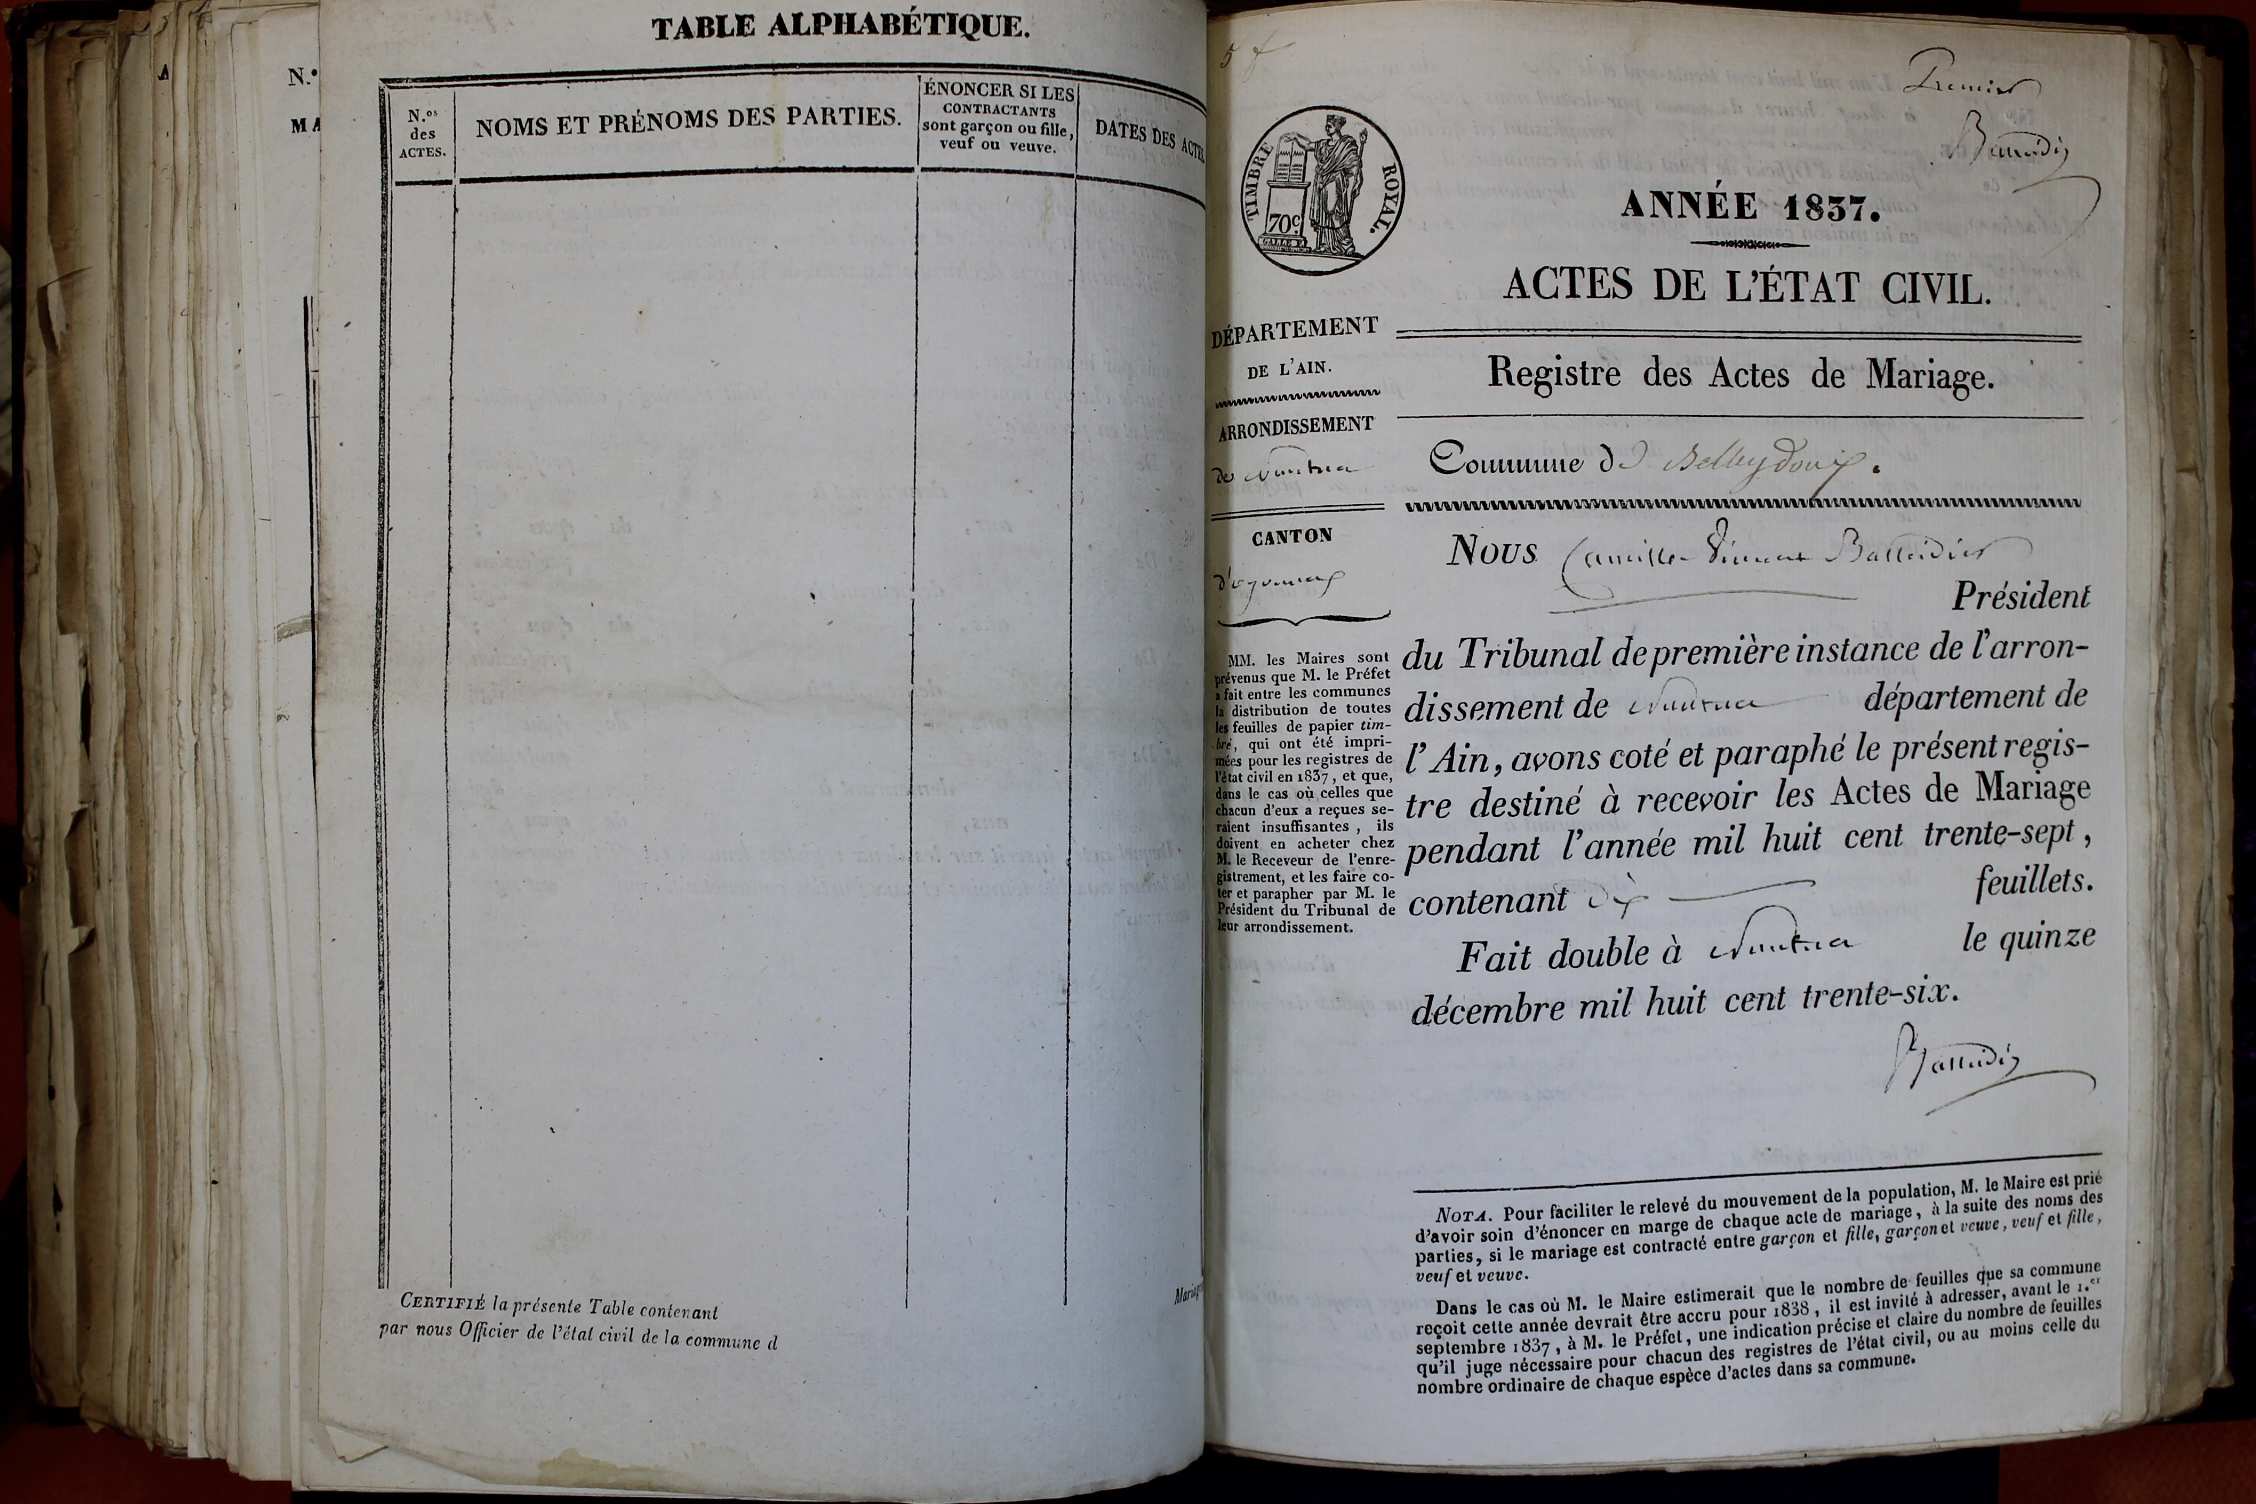 N.º
MA
TABLE ALPHABÉTIQUE.
N.os
des
ACTES.
NOMS ET PRÉNOMS DES PARTIES.
ÉNONCER SI LES
CONTRACTANTS
sont garçon ou fille,
veuf ou veuve.
DATES DES ACTES
CERTIFIÉ la présente Table contenant
par nous Officier de l'état civil de la commune d
5 f
Premier
TIMBRE ROYAL.
70c
ANNÉE 1837.
ACTES DE L'ÉTAT CIVIL.
DÉPARTEMENT
DE L'AIN.
ARRONDISSEMENT
de Nantua
CANTON
d'oyonnax
MM. les Maires sont
prévenus que M. le Préfet
a fait entre les communes
la distribution de toutes
les feuilles de papier tim-
bré, qui ont été impri-
mées pour les registres de
l'état civil en 1837, et que,
dans le cas où celles que
chacun d'eux a reçues se-
raient insuffisantes, ils
doivent en acheter chez
M. le Receveur de l'enre-
gistrement, et les faire co-
ter et parapher par M. le
Président du Tribunal de
leur arrondissement.
Registre des Actes de Mariage.
Commune de Belleydoux.
Nous Camille Vincent
Président
du Tribunal de première instance de l'arron-
dissement de Nantua département de
l'Ain, avons coté et paraphé le présent regis-
tre destiné à recevoir les Actes de Mariage
pendant l'année mil huit cent trente-sept,
contenant dix feuillets.
Fait double à Nantua le quinze
décembre mil huit cent trente-six.
NOTA. Pour faciliter le relevé du mouvement de la population, M. le Maire est prié
d'avoir soin d'énoncer en marge de chaque acte de mariage, à la suite des noms des
parties, si le mariage est contracté entre garçon et fille, garçon et veuve, veuf et fille,
veuf et veuve.
Dans le cas où M. le Maire estimerait que le nombre de feuilles que sa commune
reçoit cette année devrait être accru pour 1838, il est invité à adresser, avant le 1.er
septembre 1837, à M. le Préfet, une indication précise et claire du nombre de feuilles
qu'il juge nécessaire pour chacun des registres de l'état civil, ou au moins celle du
nombre ordinaire de chaque espèce d'actes dans sa commune.